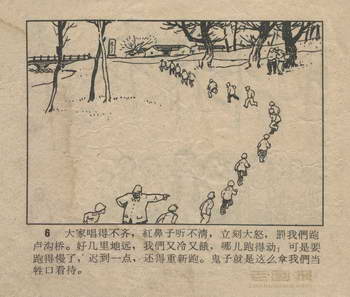 6 大家唱得不齐，紅鼻子听不清，立刻大怒，罰我們跑
卢沟桥。好几里地远，我們又冷又餓，哪儿跑得动；可是要
跑得慢了，迟到一点、还得重新跑。鬼子就是这么拿我們当
牲口看待。